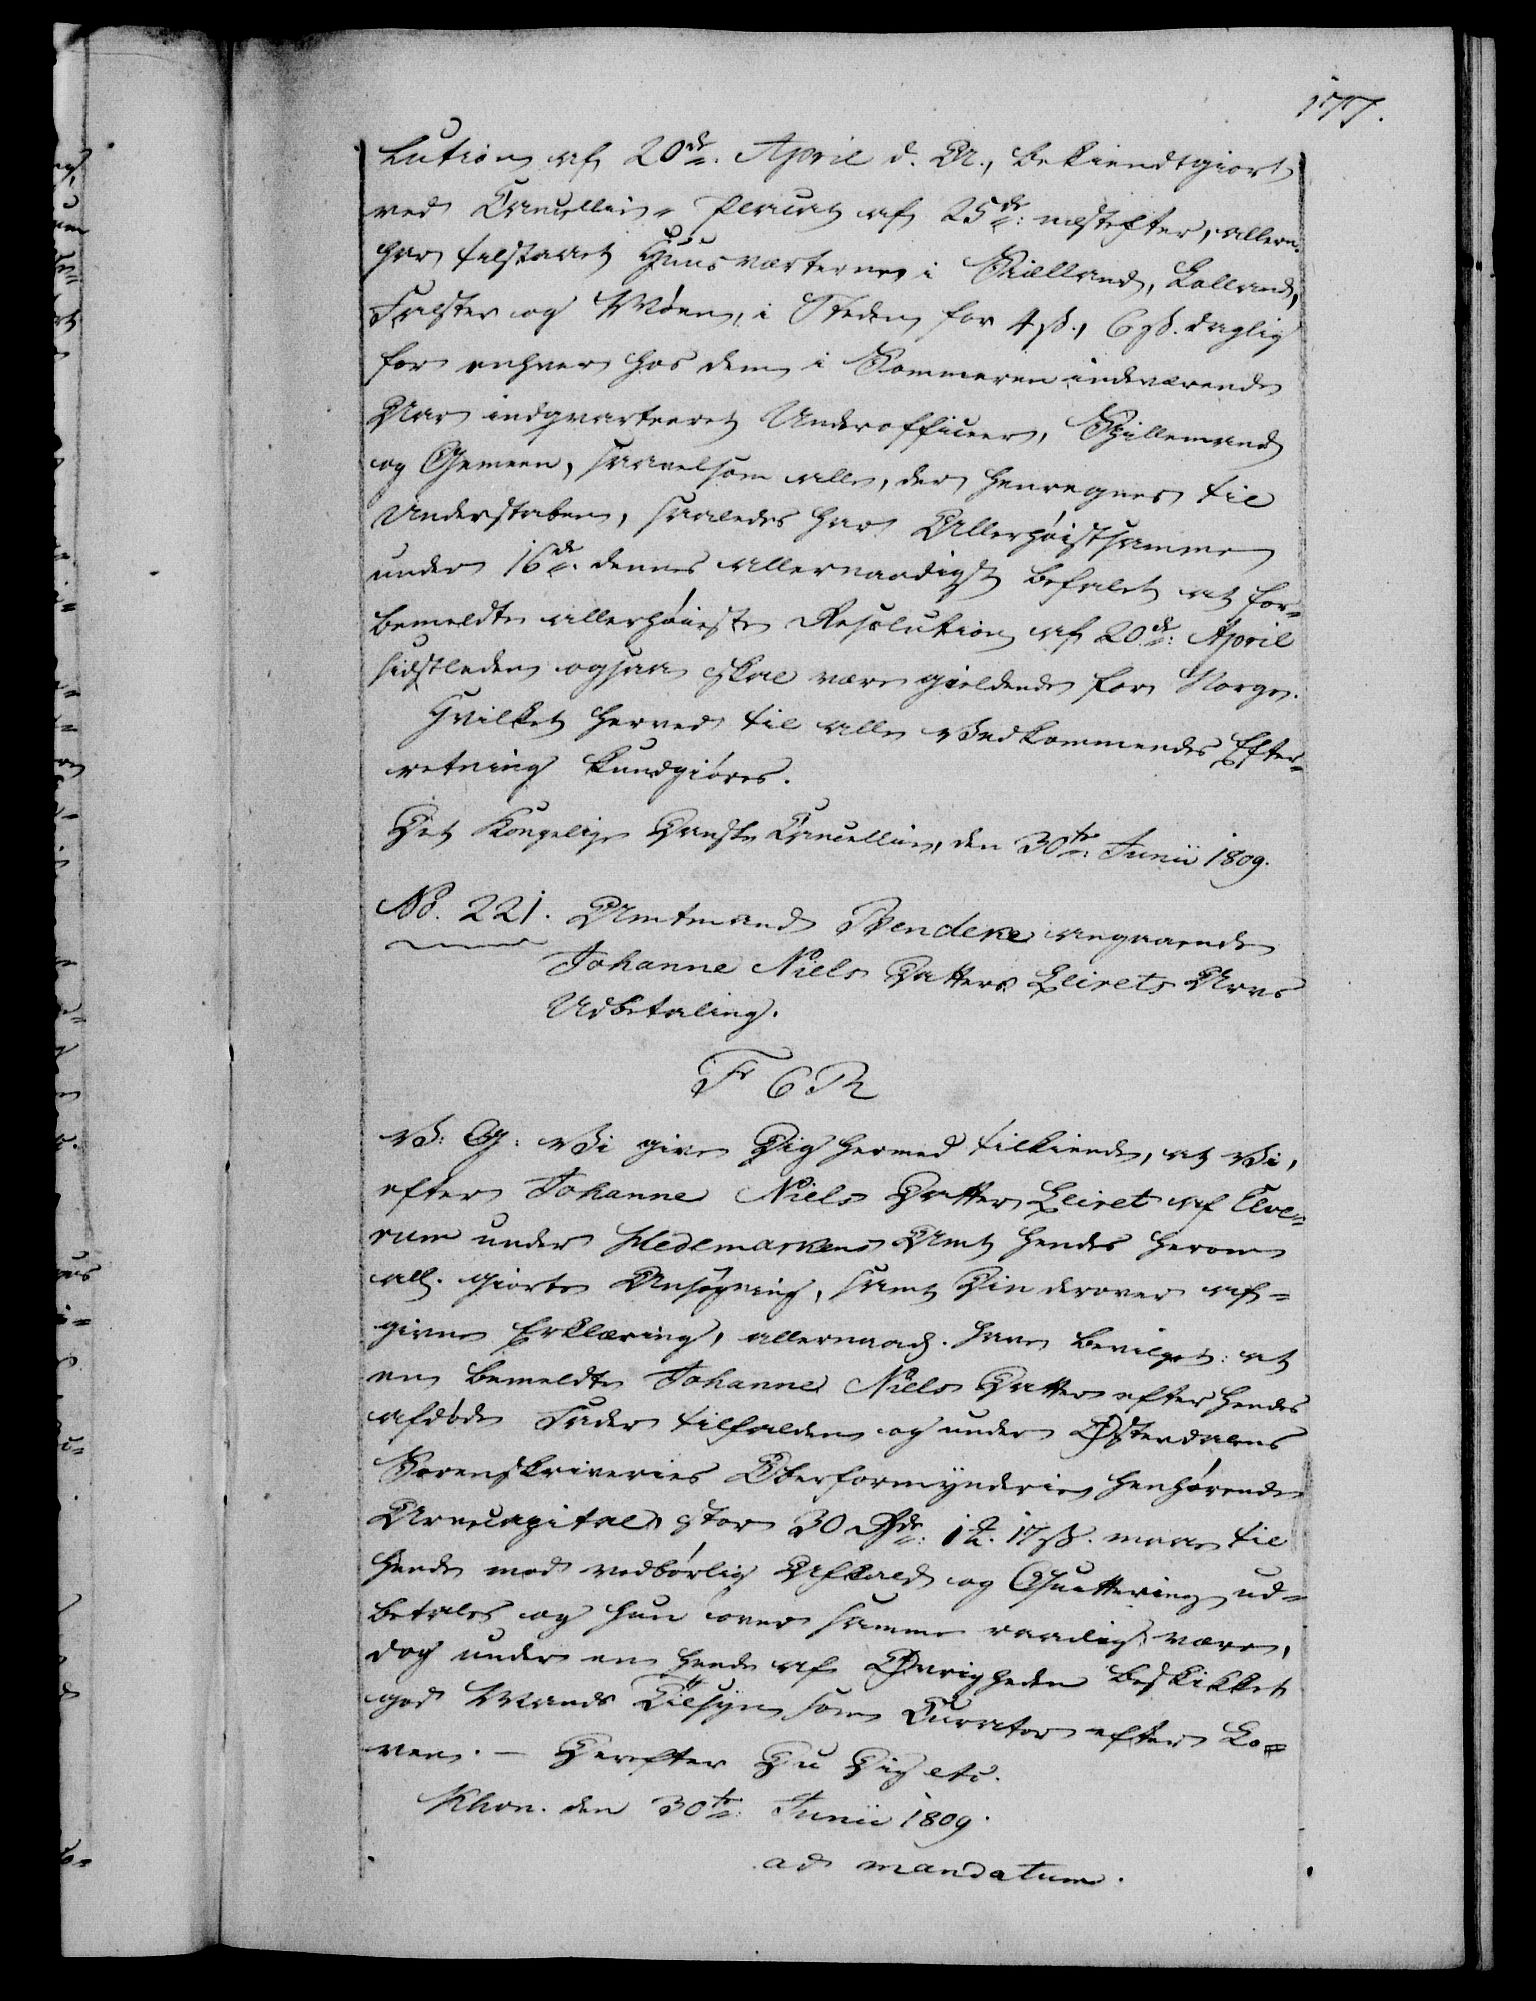 177.
lution af 20de. April d. A., bekiendtgiort
ved Cancellie-Placat af 25de: næstefter, allern.
har tilstaaet Huusværterne i Siælland, Lolland,
Falster og Møen, i Steden for 4 ß., 6 ß. daglig
for enhver hos dem i Sommeren indeværende
Aar indqvarteret Underofficeer, Spillemand
og Gemeen, saavelsom alle, der henregnes til
Understaben, saaledes har Allerhøistsamme
under 16de. dennes allernaadigst befalet at for-
bemeldte allerhøieste Resolution af 20de: April
sidstleden ogsaa skal være gieldende for Norge.
Hvilket herved til alle Vedkommendes Efter-
retning kundgiøres.
Det Kongelige Danske Cancellie, den 30te: Junii 1809.
No. 221. Amtmand Bendeke angaaende
Johanne Niels Datter Leirets Arvs
Udbetaling.
F 6 R
V: G: Vi give Dig hermed tilkiende, at Vi,
efter Johanne Niels Datter Leiret af Elve-
rum under Hedemarkens Amt hendes herom
all. giorte Ansøgning, samt Din derover af-
givne Erklæring, allernaad. have bevilget: at
en bemeldte Johanne Niels Datter efter hendes
afdøde Fader tilfalden og under Østerdalens
Sorenskriveries Overformynderie henhørende
Arvecapital, stor 30 Rdr: 1 . 17 ß. maae til
hende mod vedbørlig Afkald og Quittering ud-
betales og hun over samme raadig være,
dog under en hende af Øvrigheden beskikket
god Mands Tilsyn som Curator efter Lo-
ven. - Derefter Du Dig etc.
Khvn. den 30te: Junii 1809.
ad mandatum.